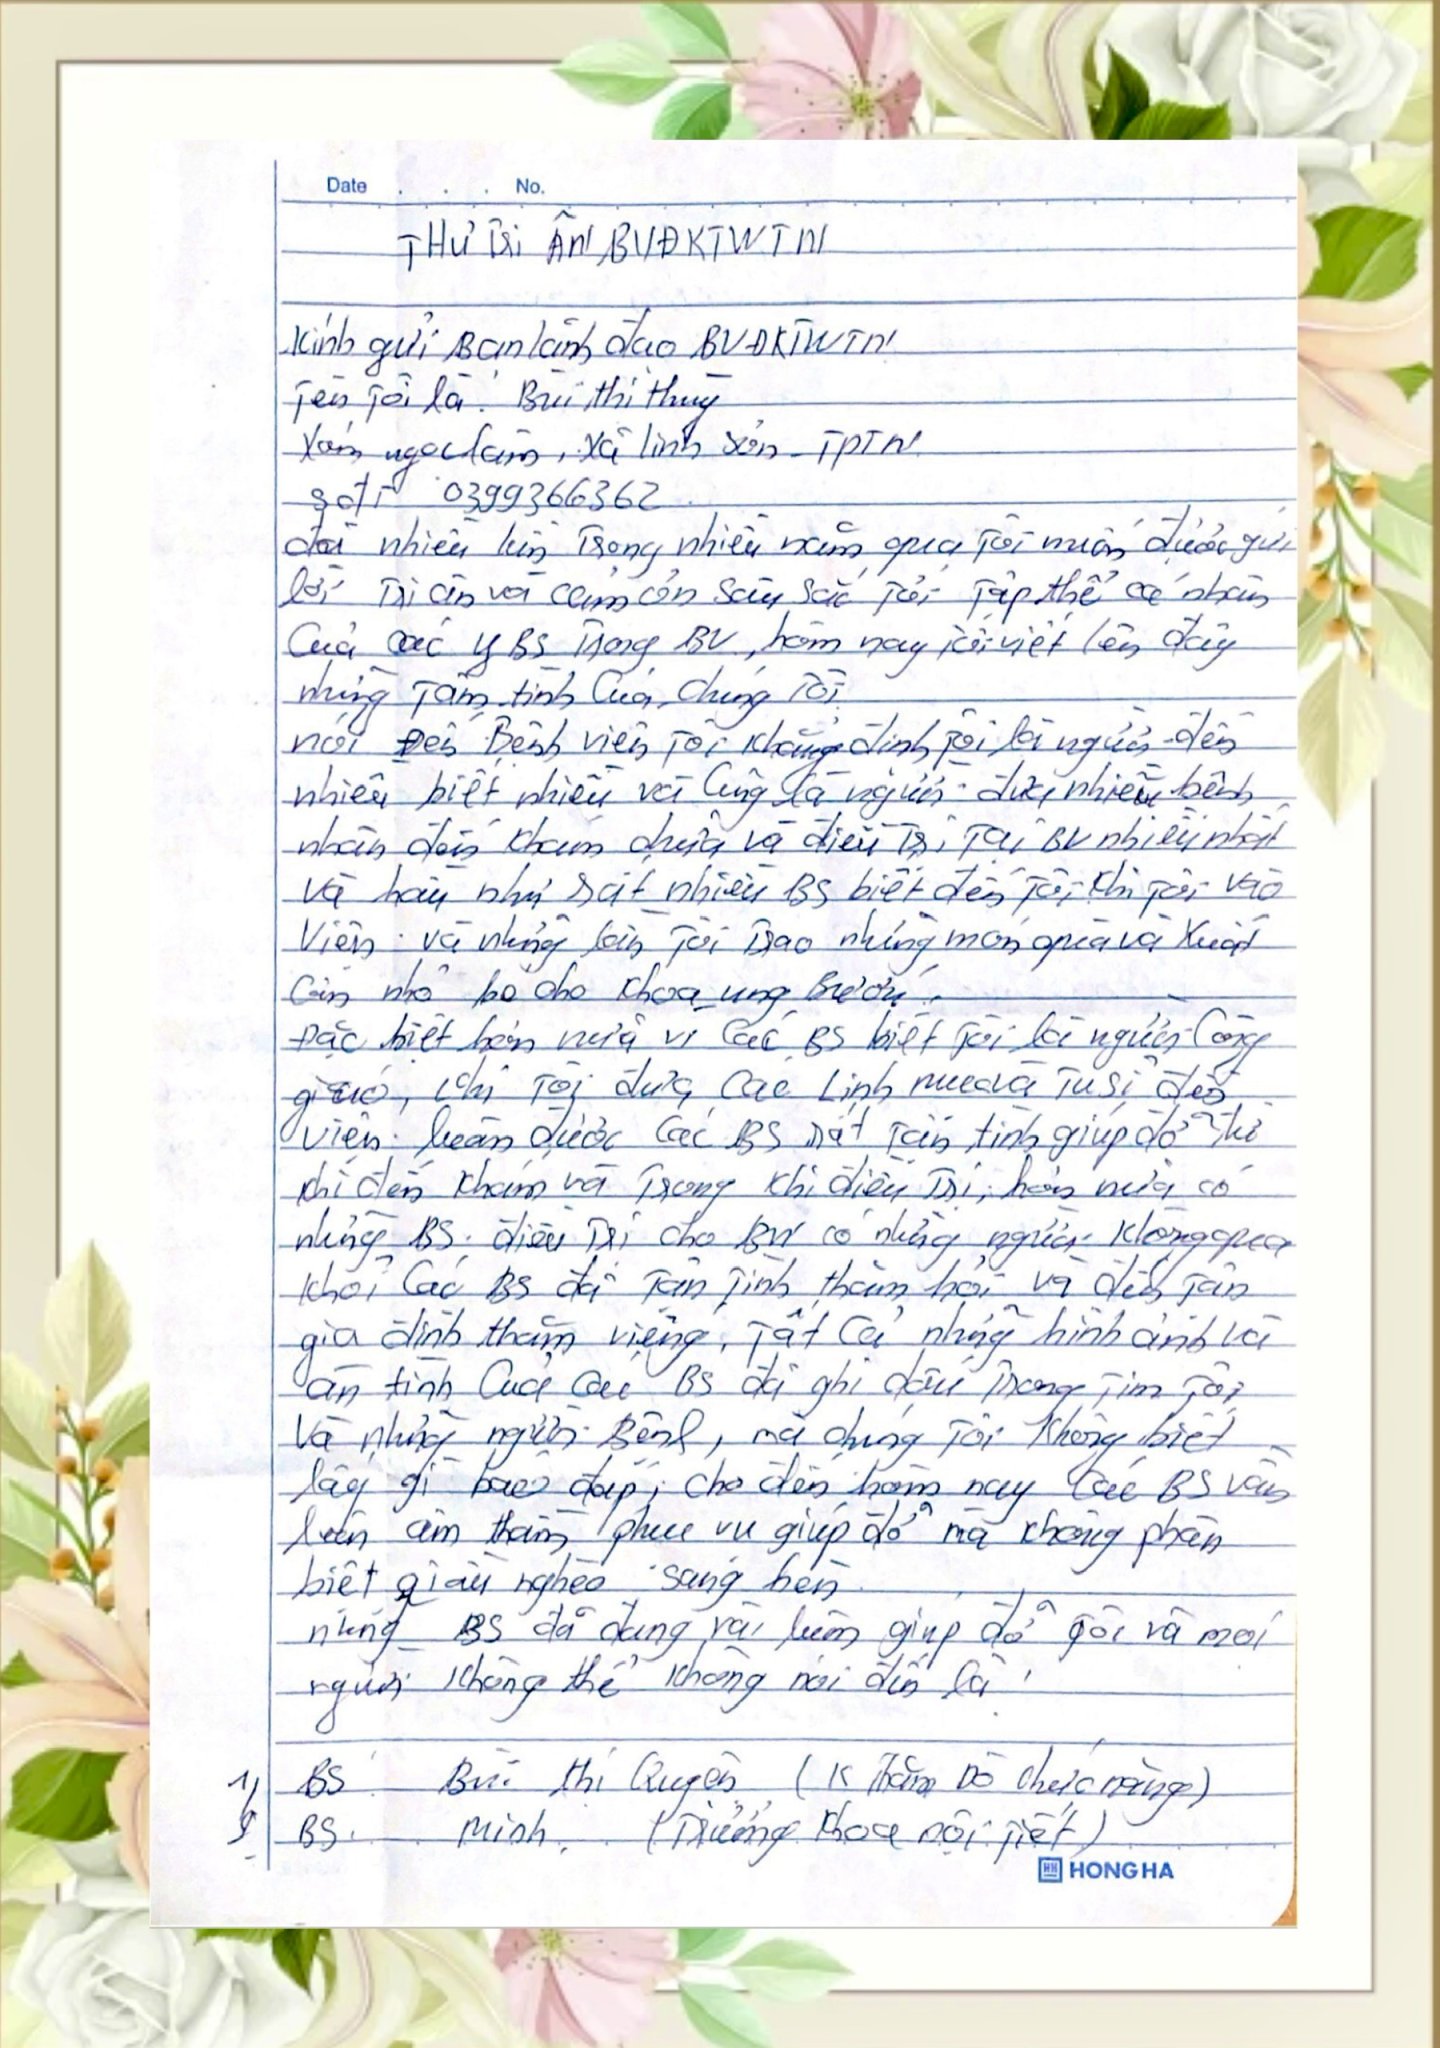 Date . . . No.
THƯ TRI ÂN BVĐKTWTN
Kính gửi Ban lãnh đạo BVĐKTWTN
Tên tôi là: Bùi thị thuỷ
Xóm ngọc lâm, xã linh sơn - TPTN
sđt 0399366362
đã nhiều lần trong nhiều năm qua tôi muốn được gửi
lời tri ân và cảm ơn sâu sắc tới tập thể cá nhân
Của các y BS trong BV, hôm nay tôi viết lên đây
những tâm tình của chúng tôi
nói đến Bệnh viện tôi khẳng định tôi là người đến
nhiều biết nhiều và cũng là người đưa nhiều bệnh
nhân đến khám chữa và điều trị tại BV nhiều nhất
và hầu như rất nhiều BS biết đến tôi khi tôi vào
Viện. và những lần tôi trao những món quà và xuất
cơm nhỏ bé cho khoa ung Bướu.
Đặc biệt hơn nữa vì các BS biết tôi là người công
giáo, khi tôi đưa các Linh mục và Tu sĩ đến
viện. luôn được các BS rất tận tình giúp đỡ từ
khi đến khám và trong khi điều trị, hơn nữa có
những BS. điều trị cho BN có những người không qua
khỏi các BS đã tận tình thăm hỏi và đến tận
gia đình thăm viếng, tất cả những hình ảnh và
ân tình của các BS đã ghi dấu trong tim tôi
Và những người Bệnh, mà chúng tôi không biết
lấy gì báo đáp, cho đến hôm nay các BS vẫn
luôn âm thầm phục vụ giúp đỡ mà không phân
biệt giàu nghèo sang hèn.
những BS đã đang và luôn giúp đỡ tôi và mọi
người không thể không nói đến là:
1, BS Bùi thị Quyên (K Thăm Dò chức năng)
BS. Minh. (Trưởng khoa nội tiết)
HONG HA